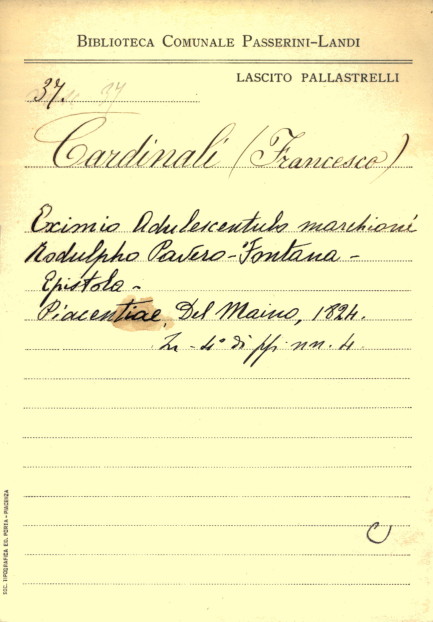 BIBLIOTECA COMUNALE PASSERINI-LANDI
LASCITO PALLASTRELLI
37. 37
Cardinali (Francesco)
Eximio Adulescentulo marchioni
Rodulpho Pavero-Fontana -
Epistola -
Piacentiae, Del Maino, 1824.
In - 4° di pp. nn. 4
C
SOC. TIPOGRAFICA ED. PORTA - PIACENZA